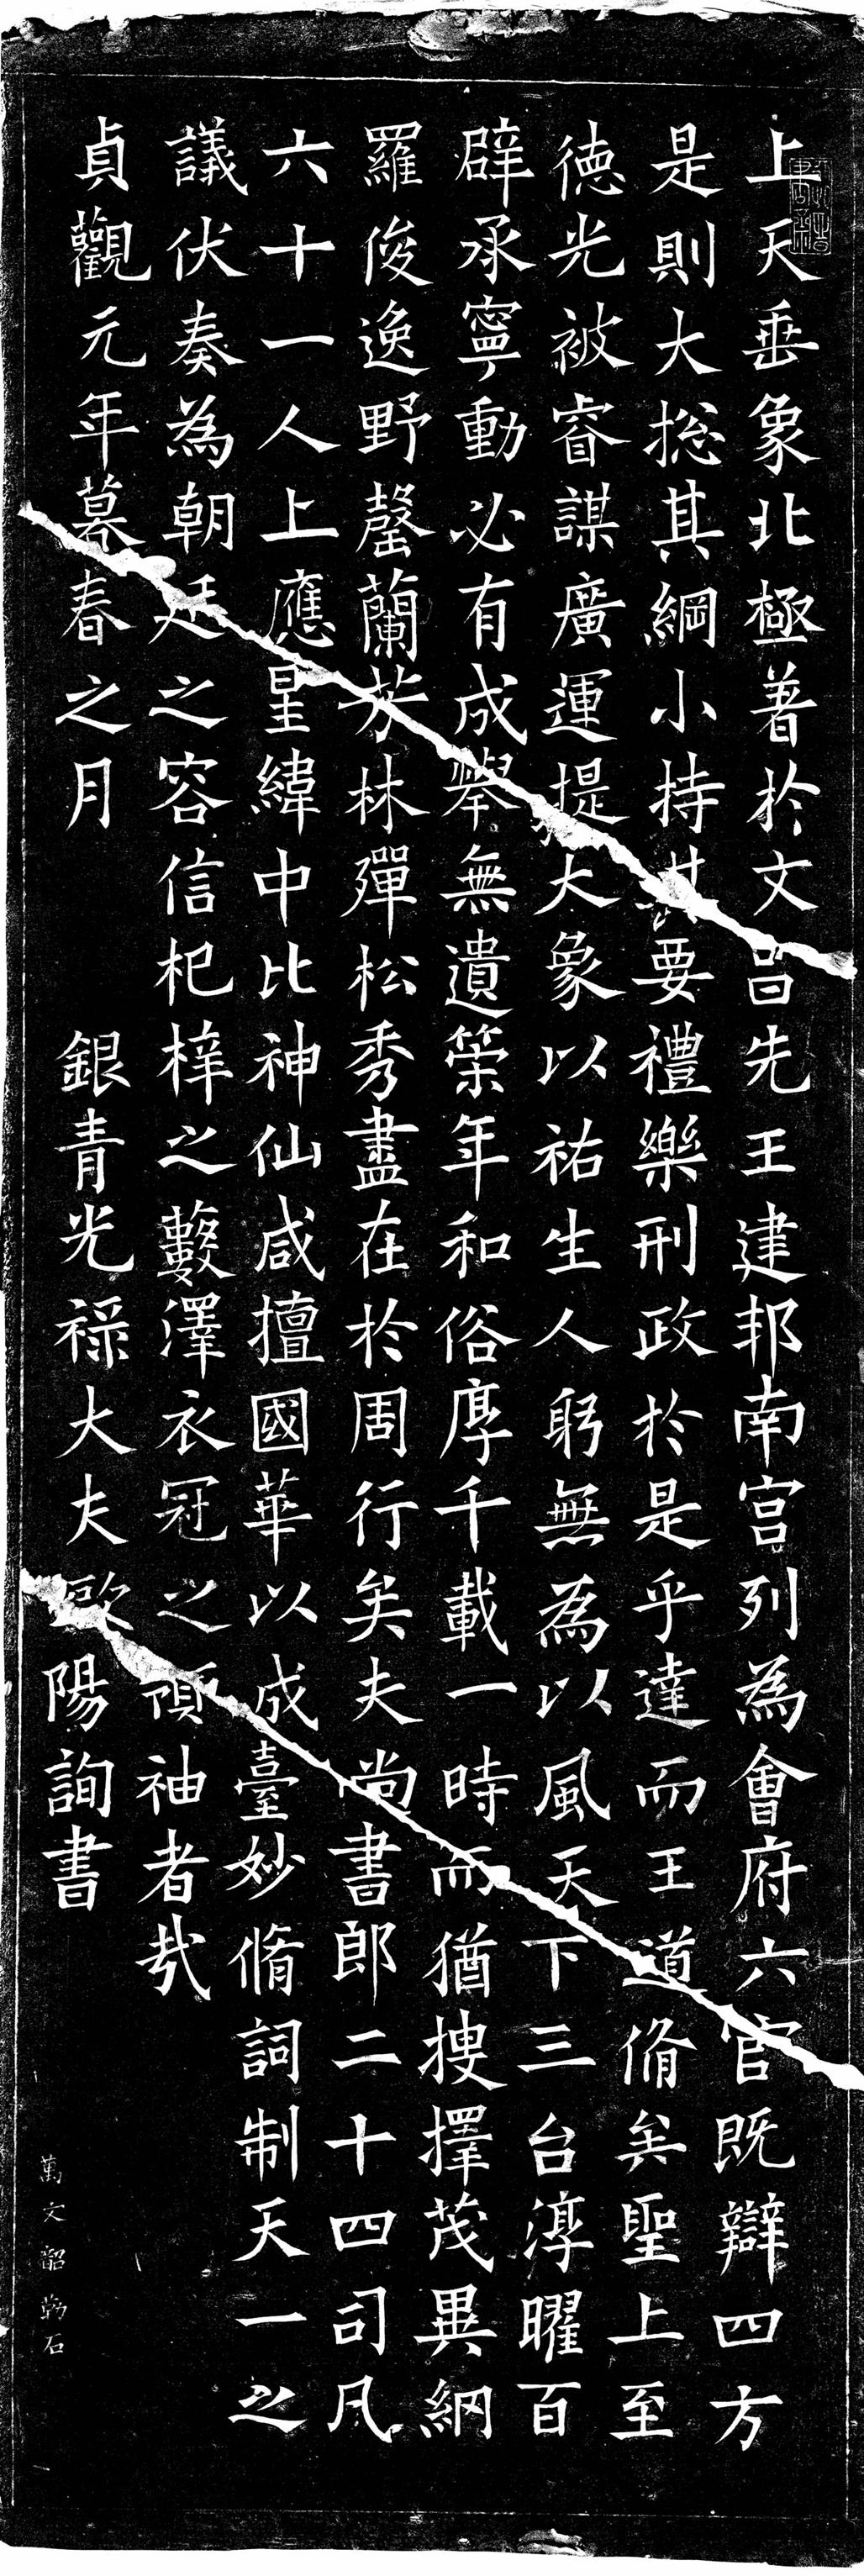 上天垂象北極著於文昌先王建邦南宮列為會府六官既辯四方
是則大揔其綱小持其要禮樂刑政於是乎達而王道脩矣聖上至
德光被睿謀廣運提大象以祐生人躬無為以風天下三台淳曜百
辟承寧動必有成舉無遺筞年和俗厚千載一時而猶搜擇茂異網
羅俊逸野罄蘭芳林殫松秀盡在於周行矣夫尚書郎二十四司凡
六十一人上應星緯中比神仙咸擅國華以成臺妙脩詞制天一之
議伏奏為朝廷之容信杞梓之藪澤衣冠之領袖者㢤
貞觀元年暮春之月 銀青光祿大夫歐陽詢書
萬文韶勒石